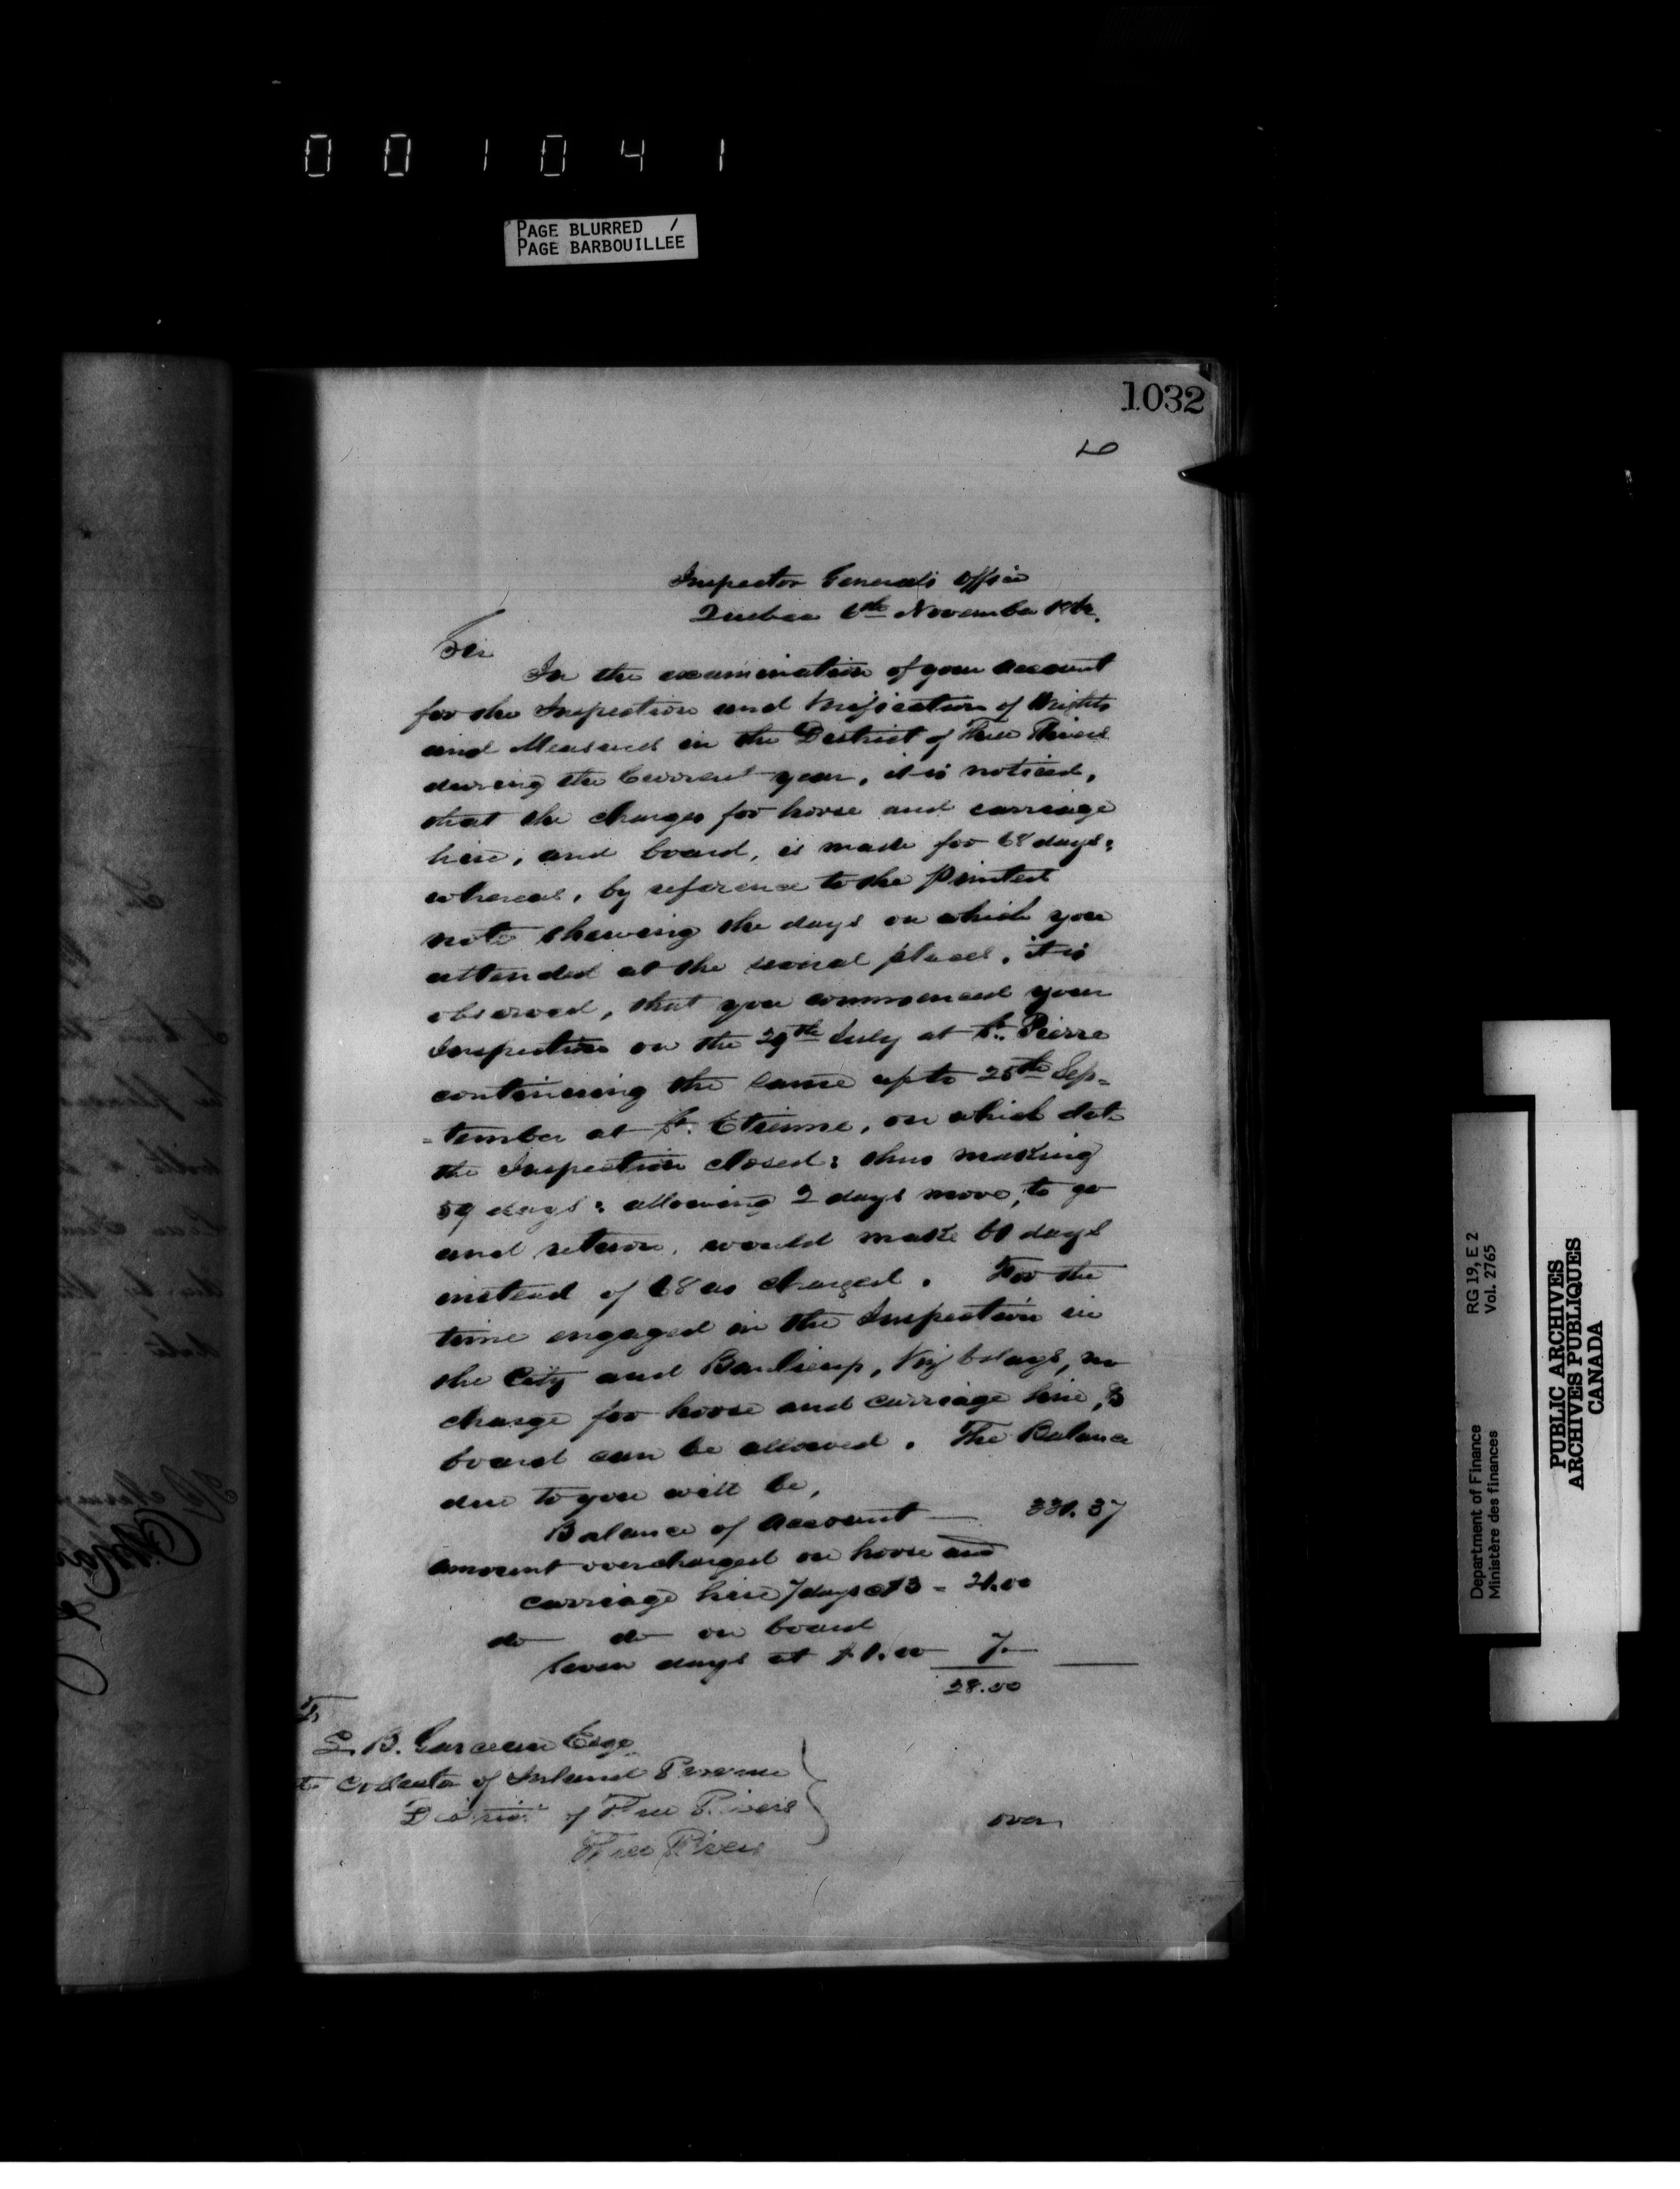 001041
PAGE BLURRED /
PAGE BARBOUILLEE
1032
Inspector General's Office
Quebec 6th November
Sir
In the examination of your account
for the Inspection and Verification of Weights
and Measures in the District of Three Rivers
during the Current year, it is noticed,
that the charges for horse and carriage
hire, and board, is made for 68 days;
whereas, by reference to the printed
note shewing the days on which you
attended at the several places, it is
observed, that you commenced your
Inspection on the 29th July at St. Pierre
continuing the same up to 25th Sep=
=tember at St. Etienne, on which date
the Inspection closed: thus making
59 days: allowing 2 days more, to go
and return, would make 61 days
instead of 68 as charged. For the
time engaged in the Inspection in
the City and Banlieue, Viz 6 days, no
charge for horse and carriage hire, &
board can be allowed. The Balance
due to you will be,
Balance of account — 331.37
amount overcharged on horse and
carriage hire 7 days at $3 = 21.00
do do on board
seven days at $1.00 7.—
28.00
To
B. Garceau Esqr
Collector of Inland Revenue
District of Three Rivers
Three Rivers
over
Department of Finance RG 19, E 2
Ministère des finances Vol. 2765
PUBLIC ARCHIVES
ARCHIVES PUBLIQUES
CANADA